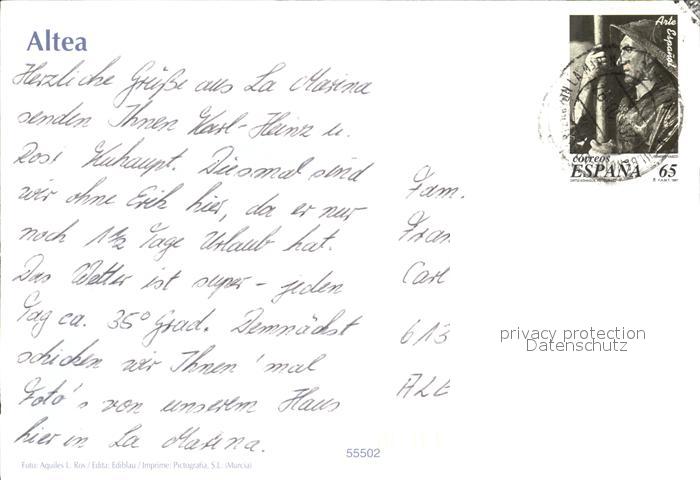 Altea
Herzliche Grüße aus La Marina
senden Ihnen Karl-Heinz u.
Rosi Kuhaupt. Diesmal sind
wir ohne Erik hier, da er nur
noch 1½ Tage Urlaub hat.
Das Wetter ist super - jeden
Tag ca. 35° Grad. Demnächst
schicken wir Ihnen 'mal
Foto's von unserem Haus
hier in La Marina.
Foto: Aquiles L. Ros / Edita: Ediblau / Imprime: Pictografia, S.L. (Murcia)
55502
Arte Español
correos
ESPAÑA 65
Fam.
Fran
Carl
613
ALt
privacy protection
Datenschutz